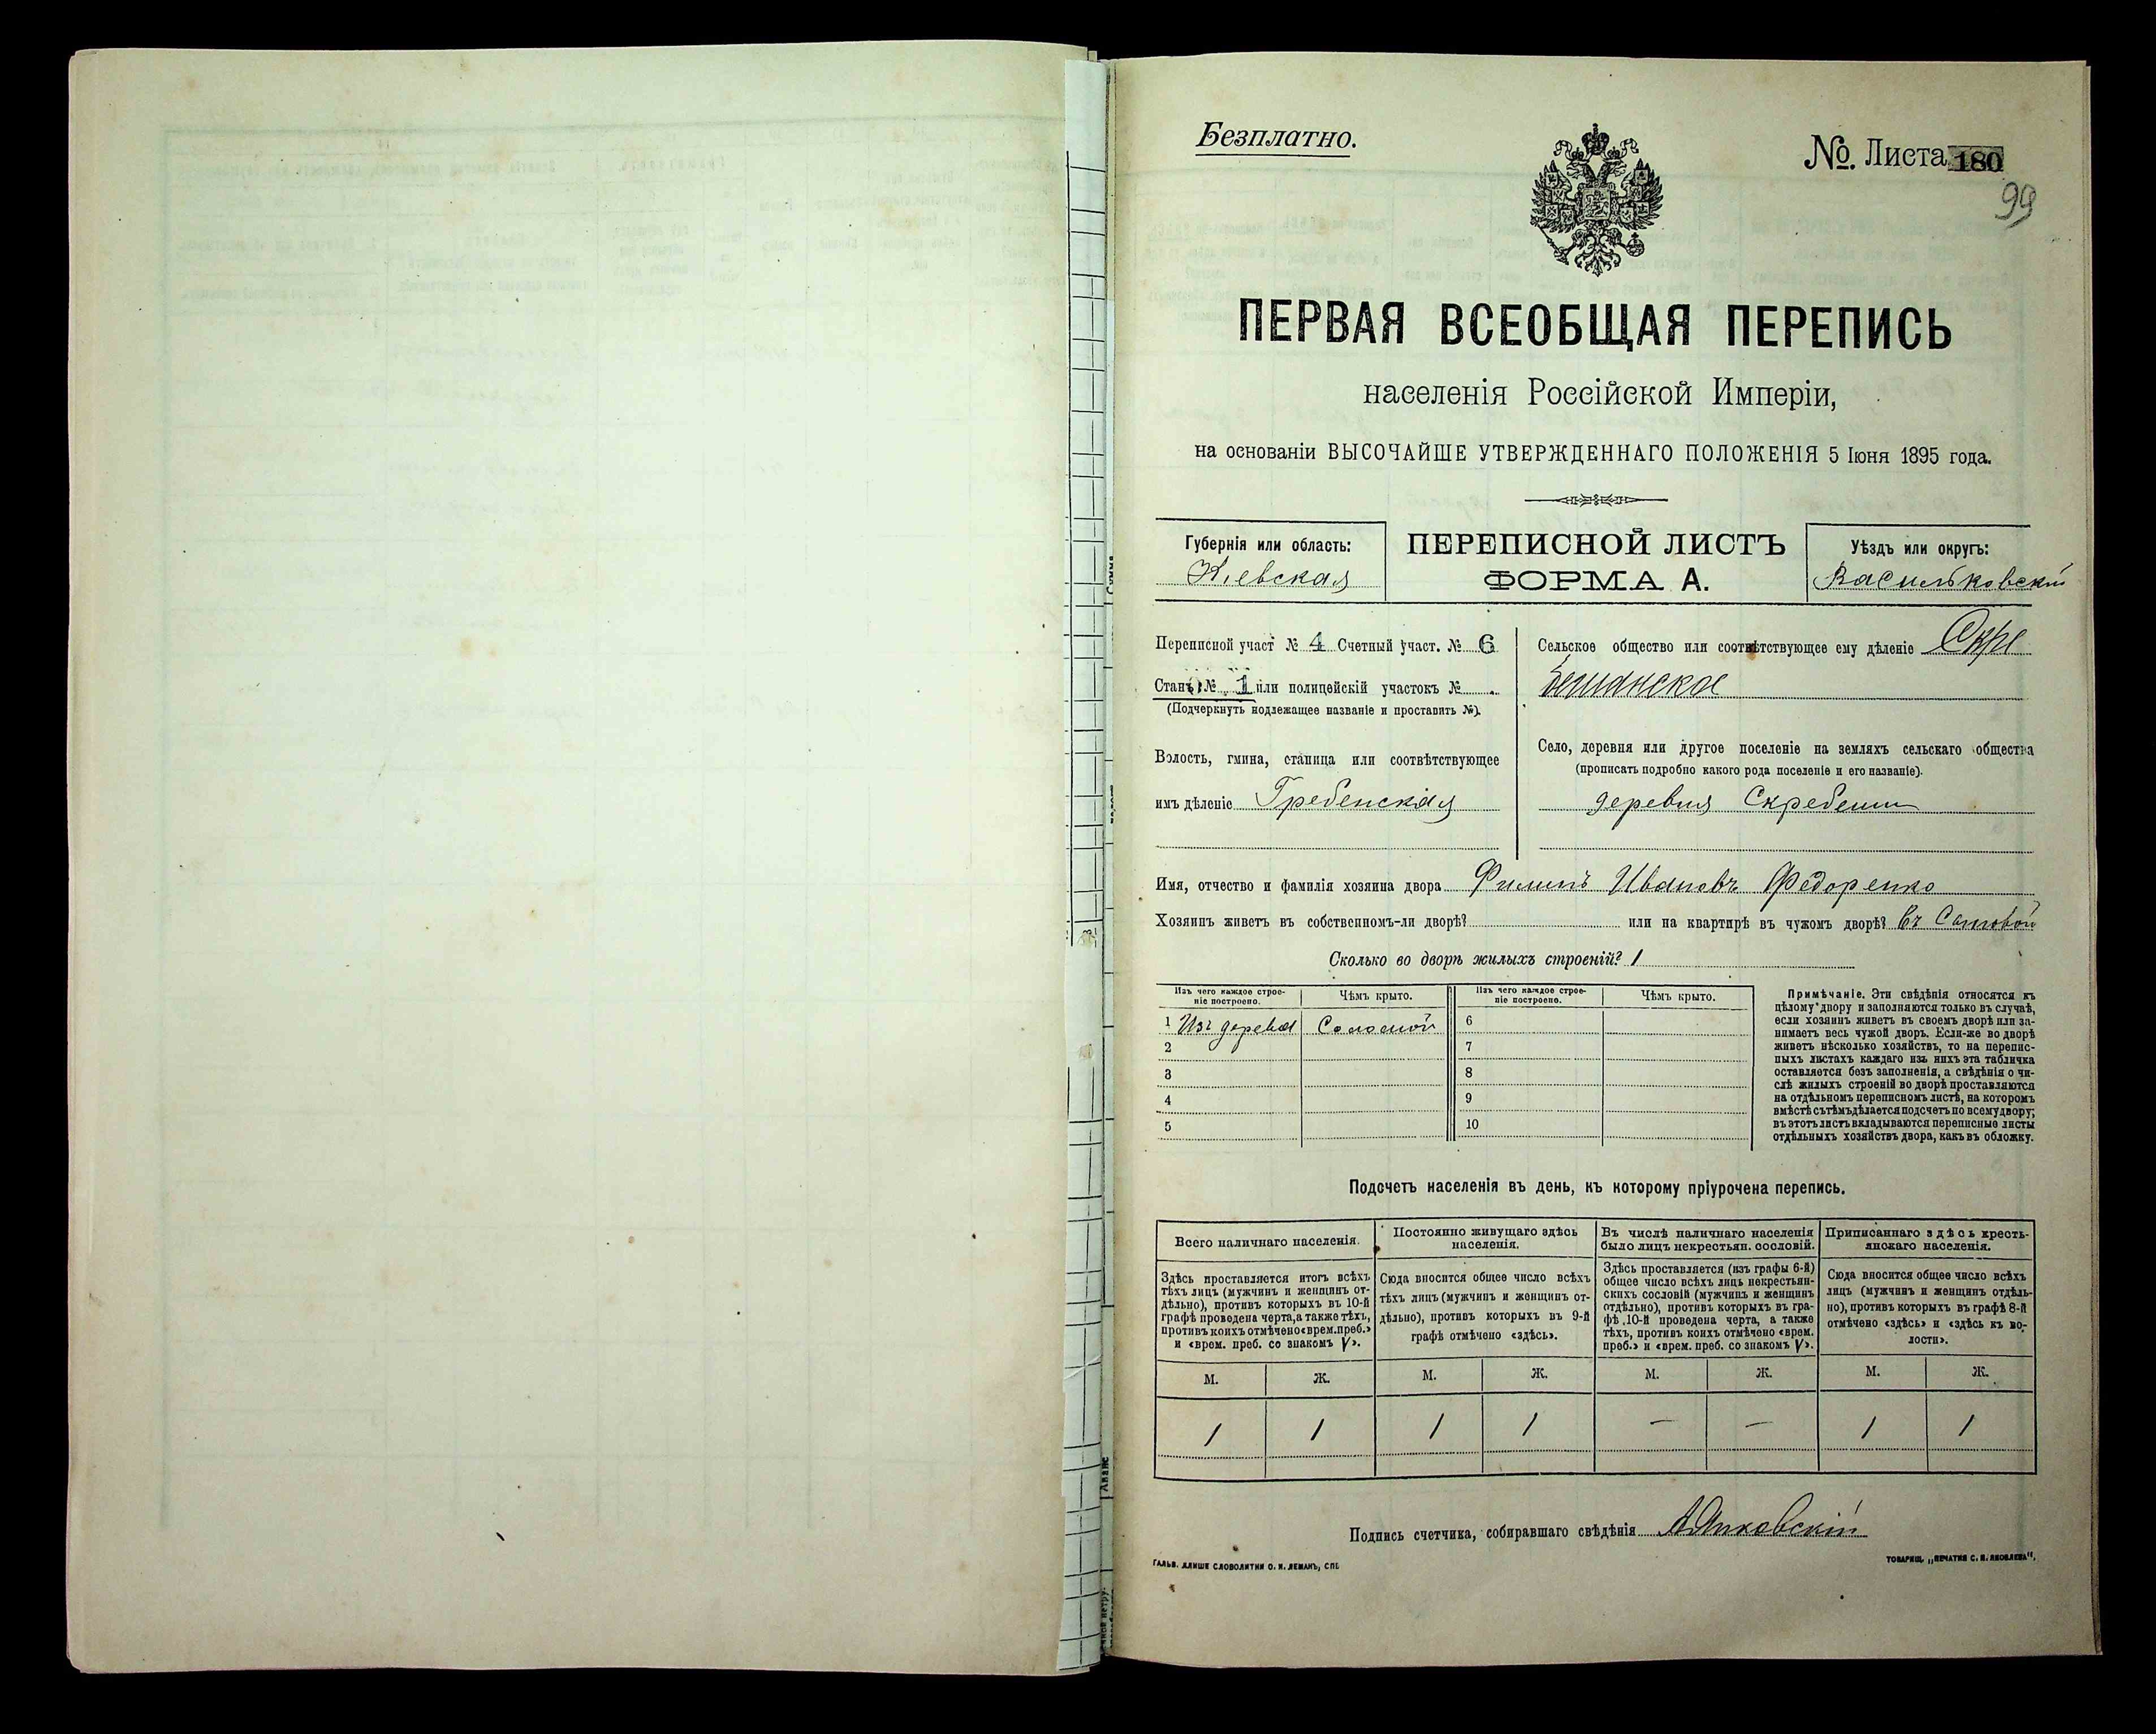 Безплатно.
№. Листа 180
99
ПЕРВАЯ ВСЕОБЩАЯ ПЕРЕПИСЬ
населенія Россійской Имперіи,
на основаніи ВЫСОЧАЙШЕ УТВЕРЖДЕННАГО ПОЛОЖЕНІЯ 5 Іюня 1895 года.
Губернія или область:
Кіевская
ПЕРЕПИСНОЙ ЛИСТЪ
ФОРМА А.
Уѣздъ или округъ:
Васильковскій
Переписной участ № 4 Счетный участ. № 6
Станъ № 1 или полицейскій участокъ №
(Подчеркнуть подлежащее названіе и проставить №).
Волость, гмина, станица или соотвѣтствующее
имъ дѣленіе Гребенская
Сельское общество или соотвѣтствующее ему дѣленіе Скре
бешанское
Село, деревня или другое поселеніе на земляхъ сельскаго общества
(прописать подробно какого рода поселеніе и его названіе).
деревня Скребеши
Имя, отчество и фамилія хозяина двора Филипъ Ивановъ Федоренко
Хозяинъ живетъ въ собственномъ-ли дворѣ? или на квартирѣ въ чужомъ дворѣ? въ
Сколько во дворѣ жилыхъ строеній? 1
Изъ чего каждое строе-
ніе построено.
Чѣмъ крыто.
Изъ чего каждое строе-
ніе построено.
Чѣмъ крыто.
1 Изъ дерева Соломой 6
2 7
3 8
4 9
5 10
Примѣчаніе. Эти свѣдѣнія относятся къ
цѣлому двору и заполняются только въ случаѣ,
если хозяинъ живетъ въ своемъ дворѣ или за-
нимаетъ весь чужой дворъ. Если-же во дворѣ
живетъ нѣсколько хозяйствъ, то на перепис-
ныхъ листахъ каждаго изъ нихъ эта табличка
оставляется безъ заполненія, а свѣдѣнія о чи-
слѣ жилыхъ строеній во дворѣ проставляются
на отдѣльномъ переписномъ листѣ, на которомъ
вмѣстѣ съ тѣмъ дѣлается подсчетъ по всему двору;
въ этотъ листъ вкладываются переписные листы
отдѣльныхъ хозяйствъ двора, какъ въ обложку.
Подсчетъ населенія въ день, къ которому пріурочена перепись.
Всего наличнаго населенія.
Здѣсь проставляется итогъ всѣхъ
тѣхъ лицъ (мужчинъ и женщинъ от-
дѣльно), противъ которыхъ въ 10-й
графѣ проведена черта, а также тѣхъ,
противъ коихъ отмѣчено «врем. преб.»
и «врем. преб. со знакомъ V».
Постоянно живущаго здѣсь
населенія.
Сюда вносится общее число всѣхъ
тѣхъ лицъ (мужчинъ и женщинъ от-
дѣльно), противъ которыхъ въ 9-й
графѣ отмѣчено «здѣсь».
Въ числѣ наличнаго населенія
было лицъ некрестьян. сословій.
Здѣсь проставляется (изъ графы 6-й)
общее число всѣхъ лицъ некрестьян-
скихъ сословій (мужчинъ и женщинъ
отдѣльно), противъ которыхъ въ гра-
фѣ 10-й проведена черта, а также
тѣхъ, противъ коихъ отмѣчено «врем.
преб.» и «врем. преб. со знакомъ V».
Приписаннаго здѣсь кресть-
янскаго населенія.
Сюда вносится общее число всѣхъ
лицъ (мужчинъ и женщинъ отдѣль-
но), противъ которыхъ въ графѣ 8-й
отмѣчено «здѣсь» и «здѣсь къ во-
лости».
М. Ж. М. Ж. М. Ж. М. Ж.
1 1 1 1 — — 1 1
Подпись счетчика, собиравшаго свѣдѣнія
ГАЛЬВ. КЛИШЕ СЛОВОЛИТНИ О. И. ЛЕМАНЪ, СПБ.
ТОВАРИЩ. „ПЕЧАТНЯ С. П. ЯКОВЛЕВА".